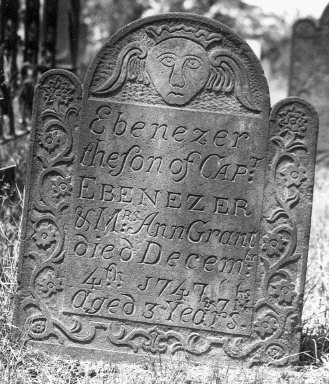 Ebenezer
the son of CAPT:
EBENEZER
& Mrs Ann Grant
died Decembr:
4th: 1747 &
Aged 3 Years.